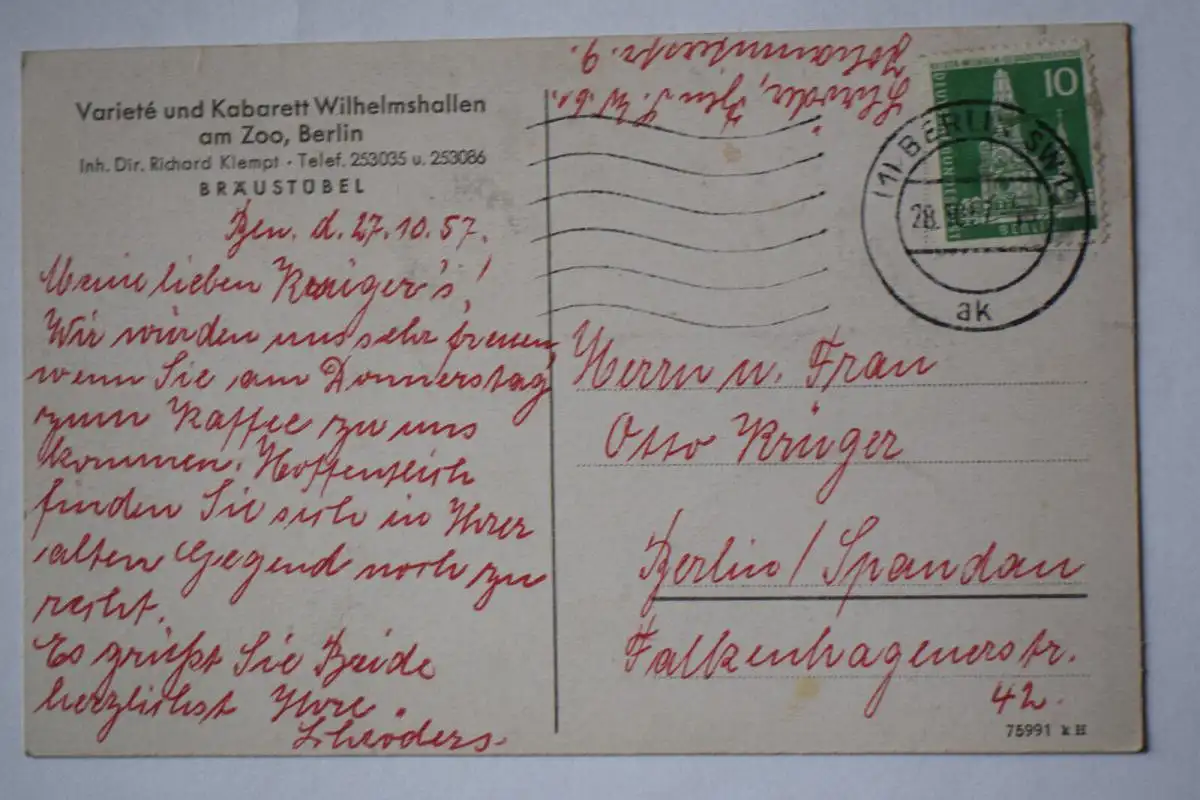 Varieté und Kabarett Wilhelmshallen
am Zoo, Berlin
Inh. Dir. Richard Klempt · Telef. 253035 u. 253086
BRÄUSTÜBEL
Bln. d. 27.10.57.
Meine lieben Krüger's!
Wir würden uns sehr freuen,
wenn Sie am Donnerstag
zum Kaffee zu uns
kommen. Hoffentlich
finden Sie sich in Ihrer
alten Gegend noch zu
recht.
Es grüßt Sie Beide
herzlichst Ihre
Schröders.
Schröder, Bln S.W. 61.
9.
10
BERLIN
(1) BERLIN SW
28.
ak
Herrn u. Frau
Otto Krüger
Berlin/Spandau
Falkenhagenerstr.
42.
75991 k H